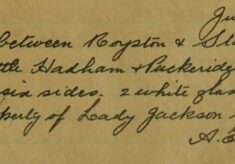 Ju
between Royston & Sta
ttle Hadham & Puckeridg
six sides. 2 white glas
perty of Lady Jackson
A. E